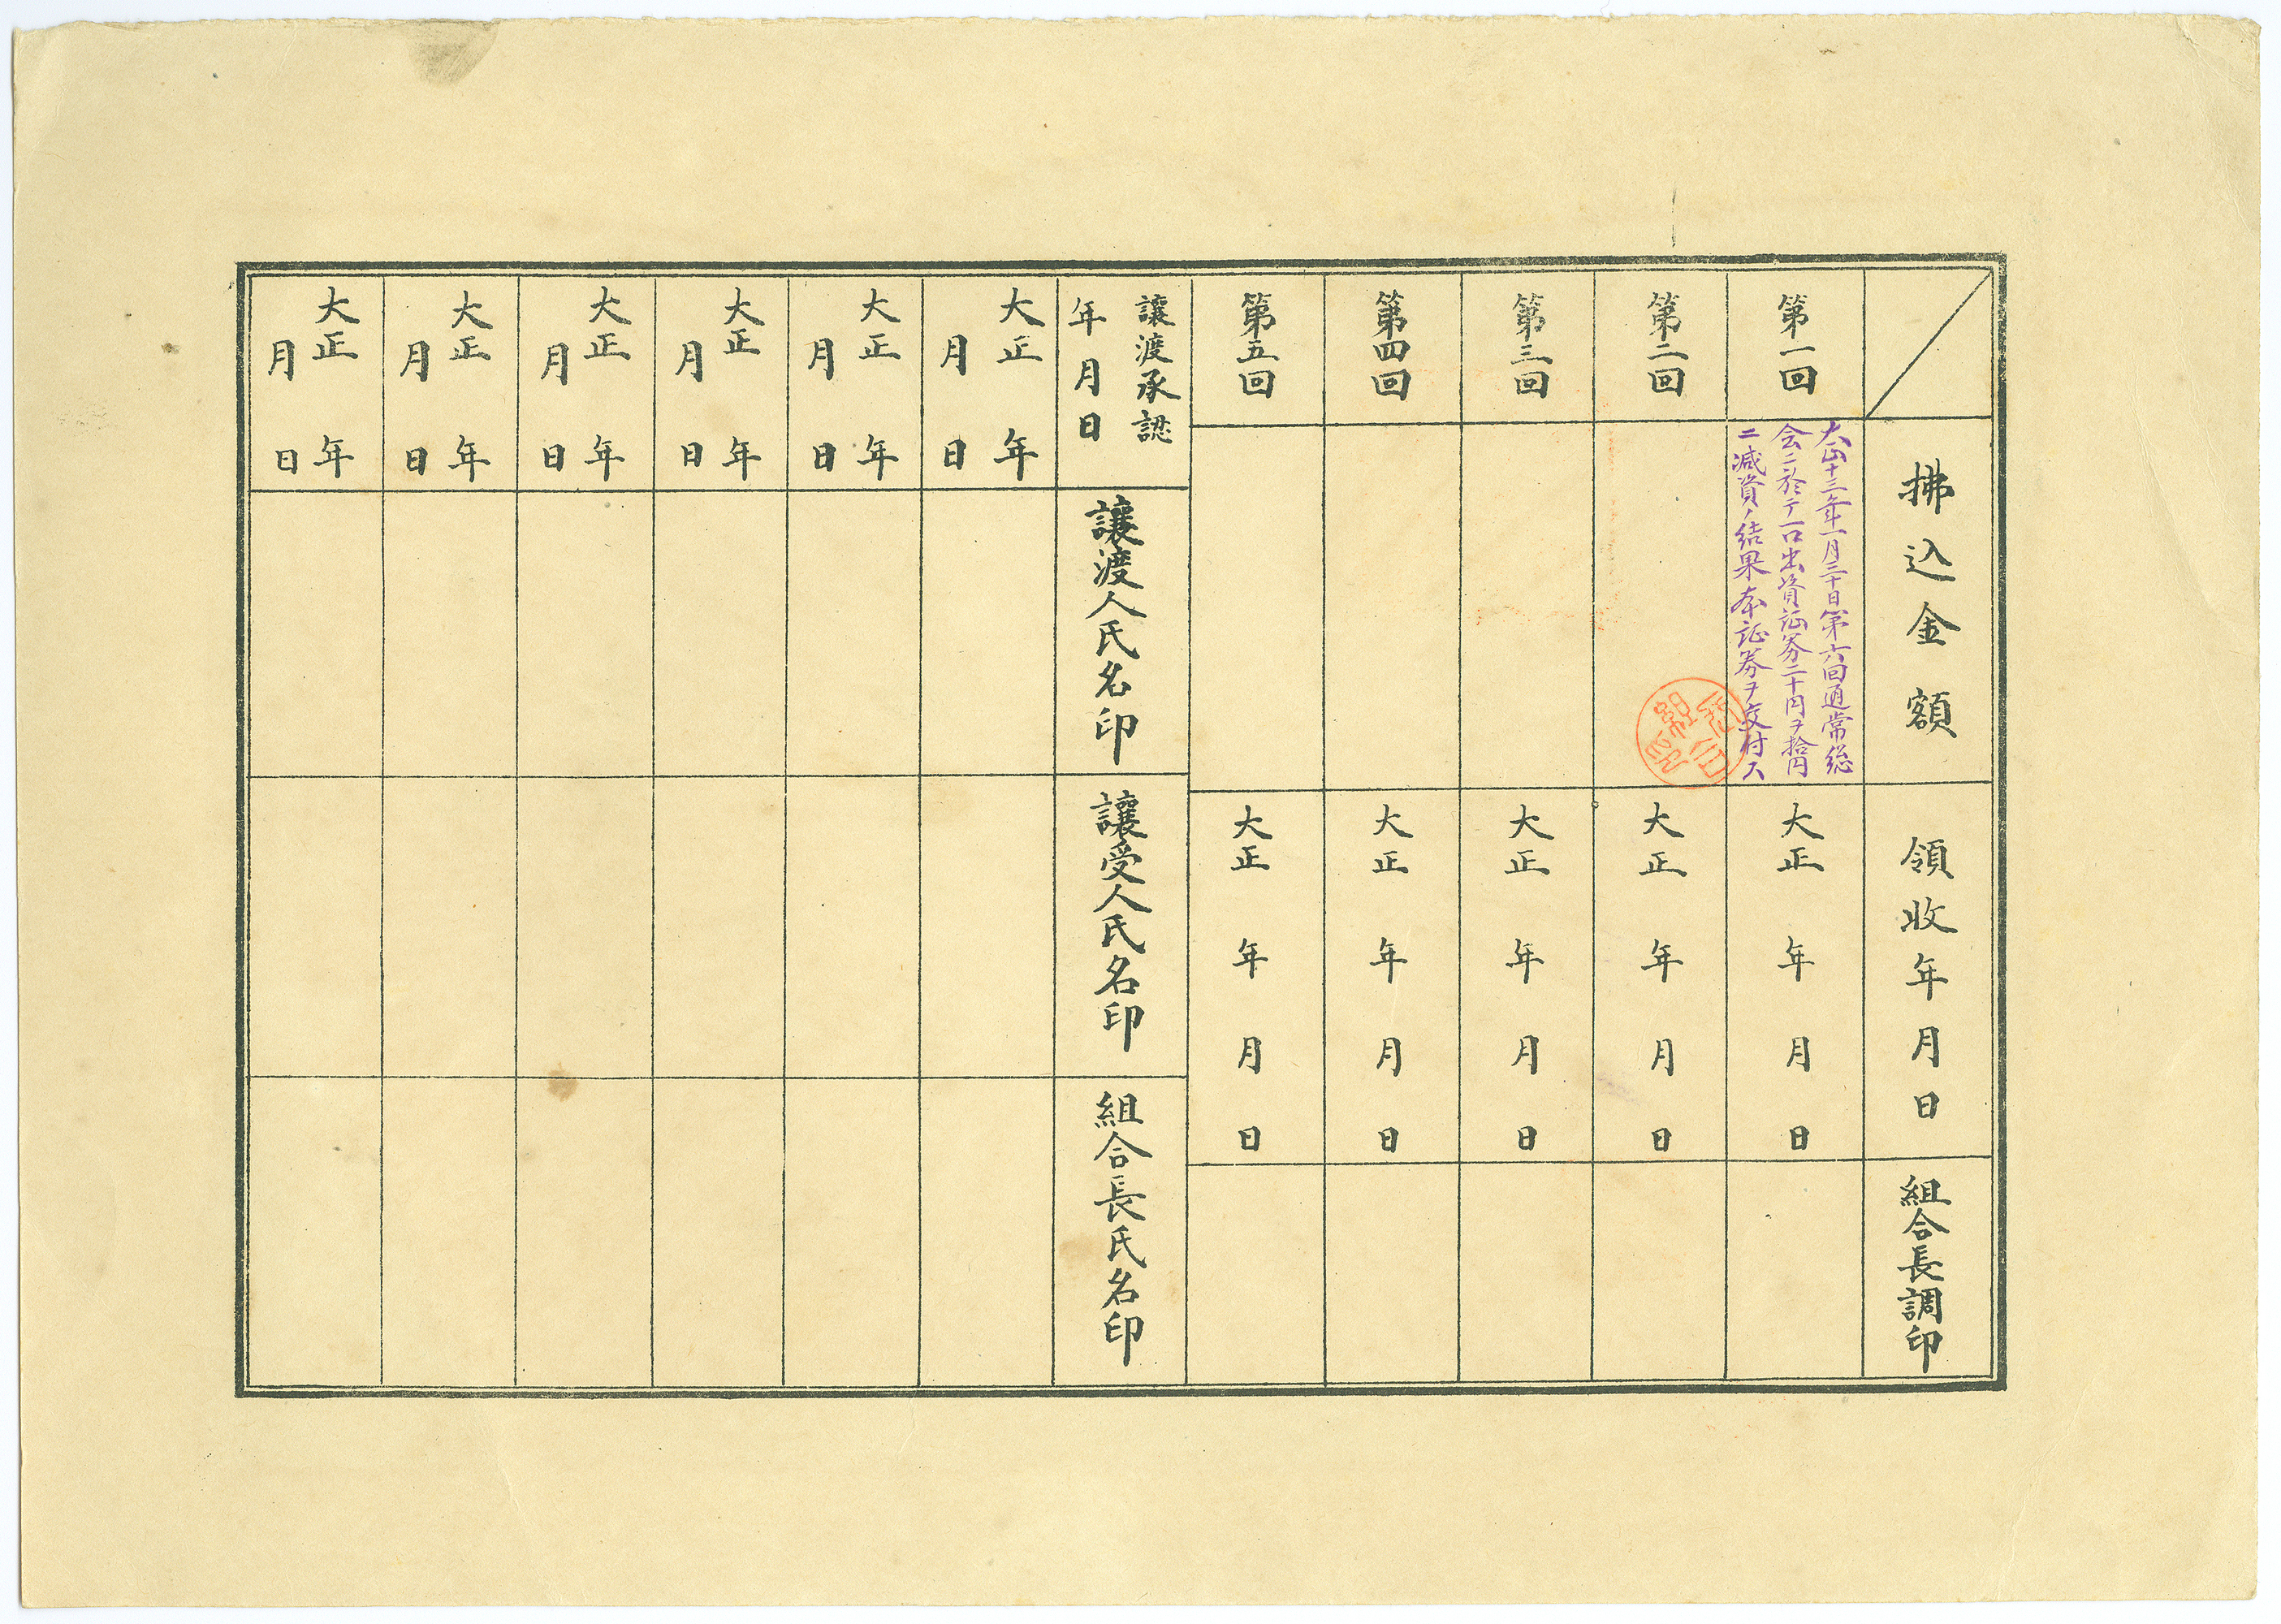 拂込金額
領收年月日
組合長調印
第一回
大正十三年一月三十日第六回通常総
会ニ於テ一口出資証券二十円ヲ拾円
ニ減資ノ結果本証券ヲ交付ス
大正 年 月 日
第二回
大正 年 月 日
第三回
大正 年 月 日
第四回
大正 年 月 日
第五回
大正 年 月 日
讓渡承認
年月日
讓渡人氏名印
讓受人氏名印
組合長氏名印
大正 年
月 日
大正 年
月 日
大正 年
月 日
大正 年
月 日
大正 年
月 日
大正 年
月 日